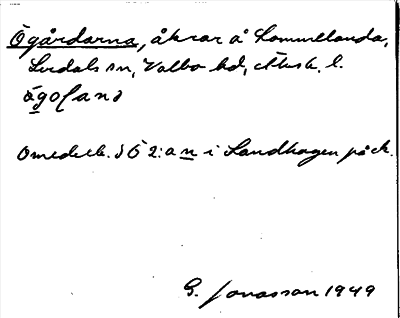 Ögårdarna, åkrar å Lommelanda,
Lerdals sn, Valbo hd, Älvsb. l.
ögoland
Omedelb. S Ö 2:an i Landhagen på ek.
G. Jonasson 1949